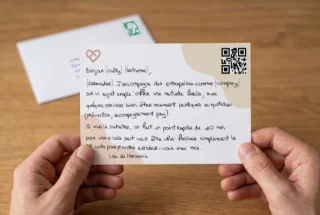 Bonjour |civility| |lastname|,
|icebreaker|. J'accompagne des entreprises comme |company|
sur un sujet simple : offrir une mutuelle fluide, avec
quelques services bien-être vraiment pratiques au quotidien
(prévention, accompagnement psy).
Si vous le souhaitez, on fait un point rapide de 20 min
pour voir si cela peut vous être utile. Flashez simplement le
QR code pour prendre rendez-vous avec moi.
Lisa de Harmonie